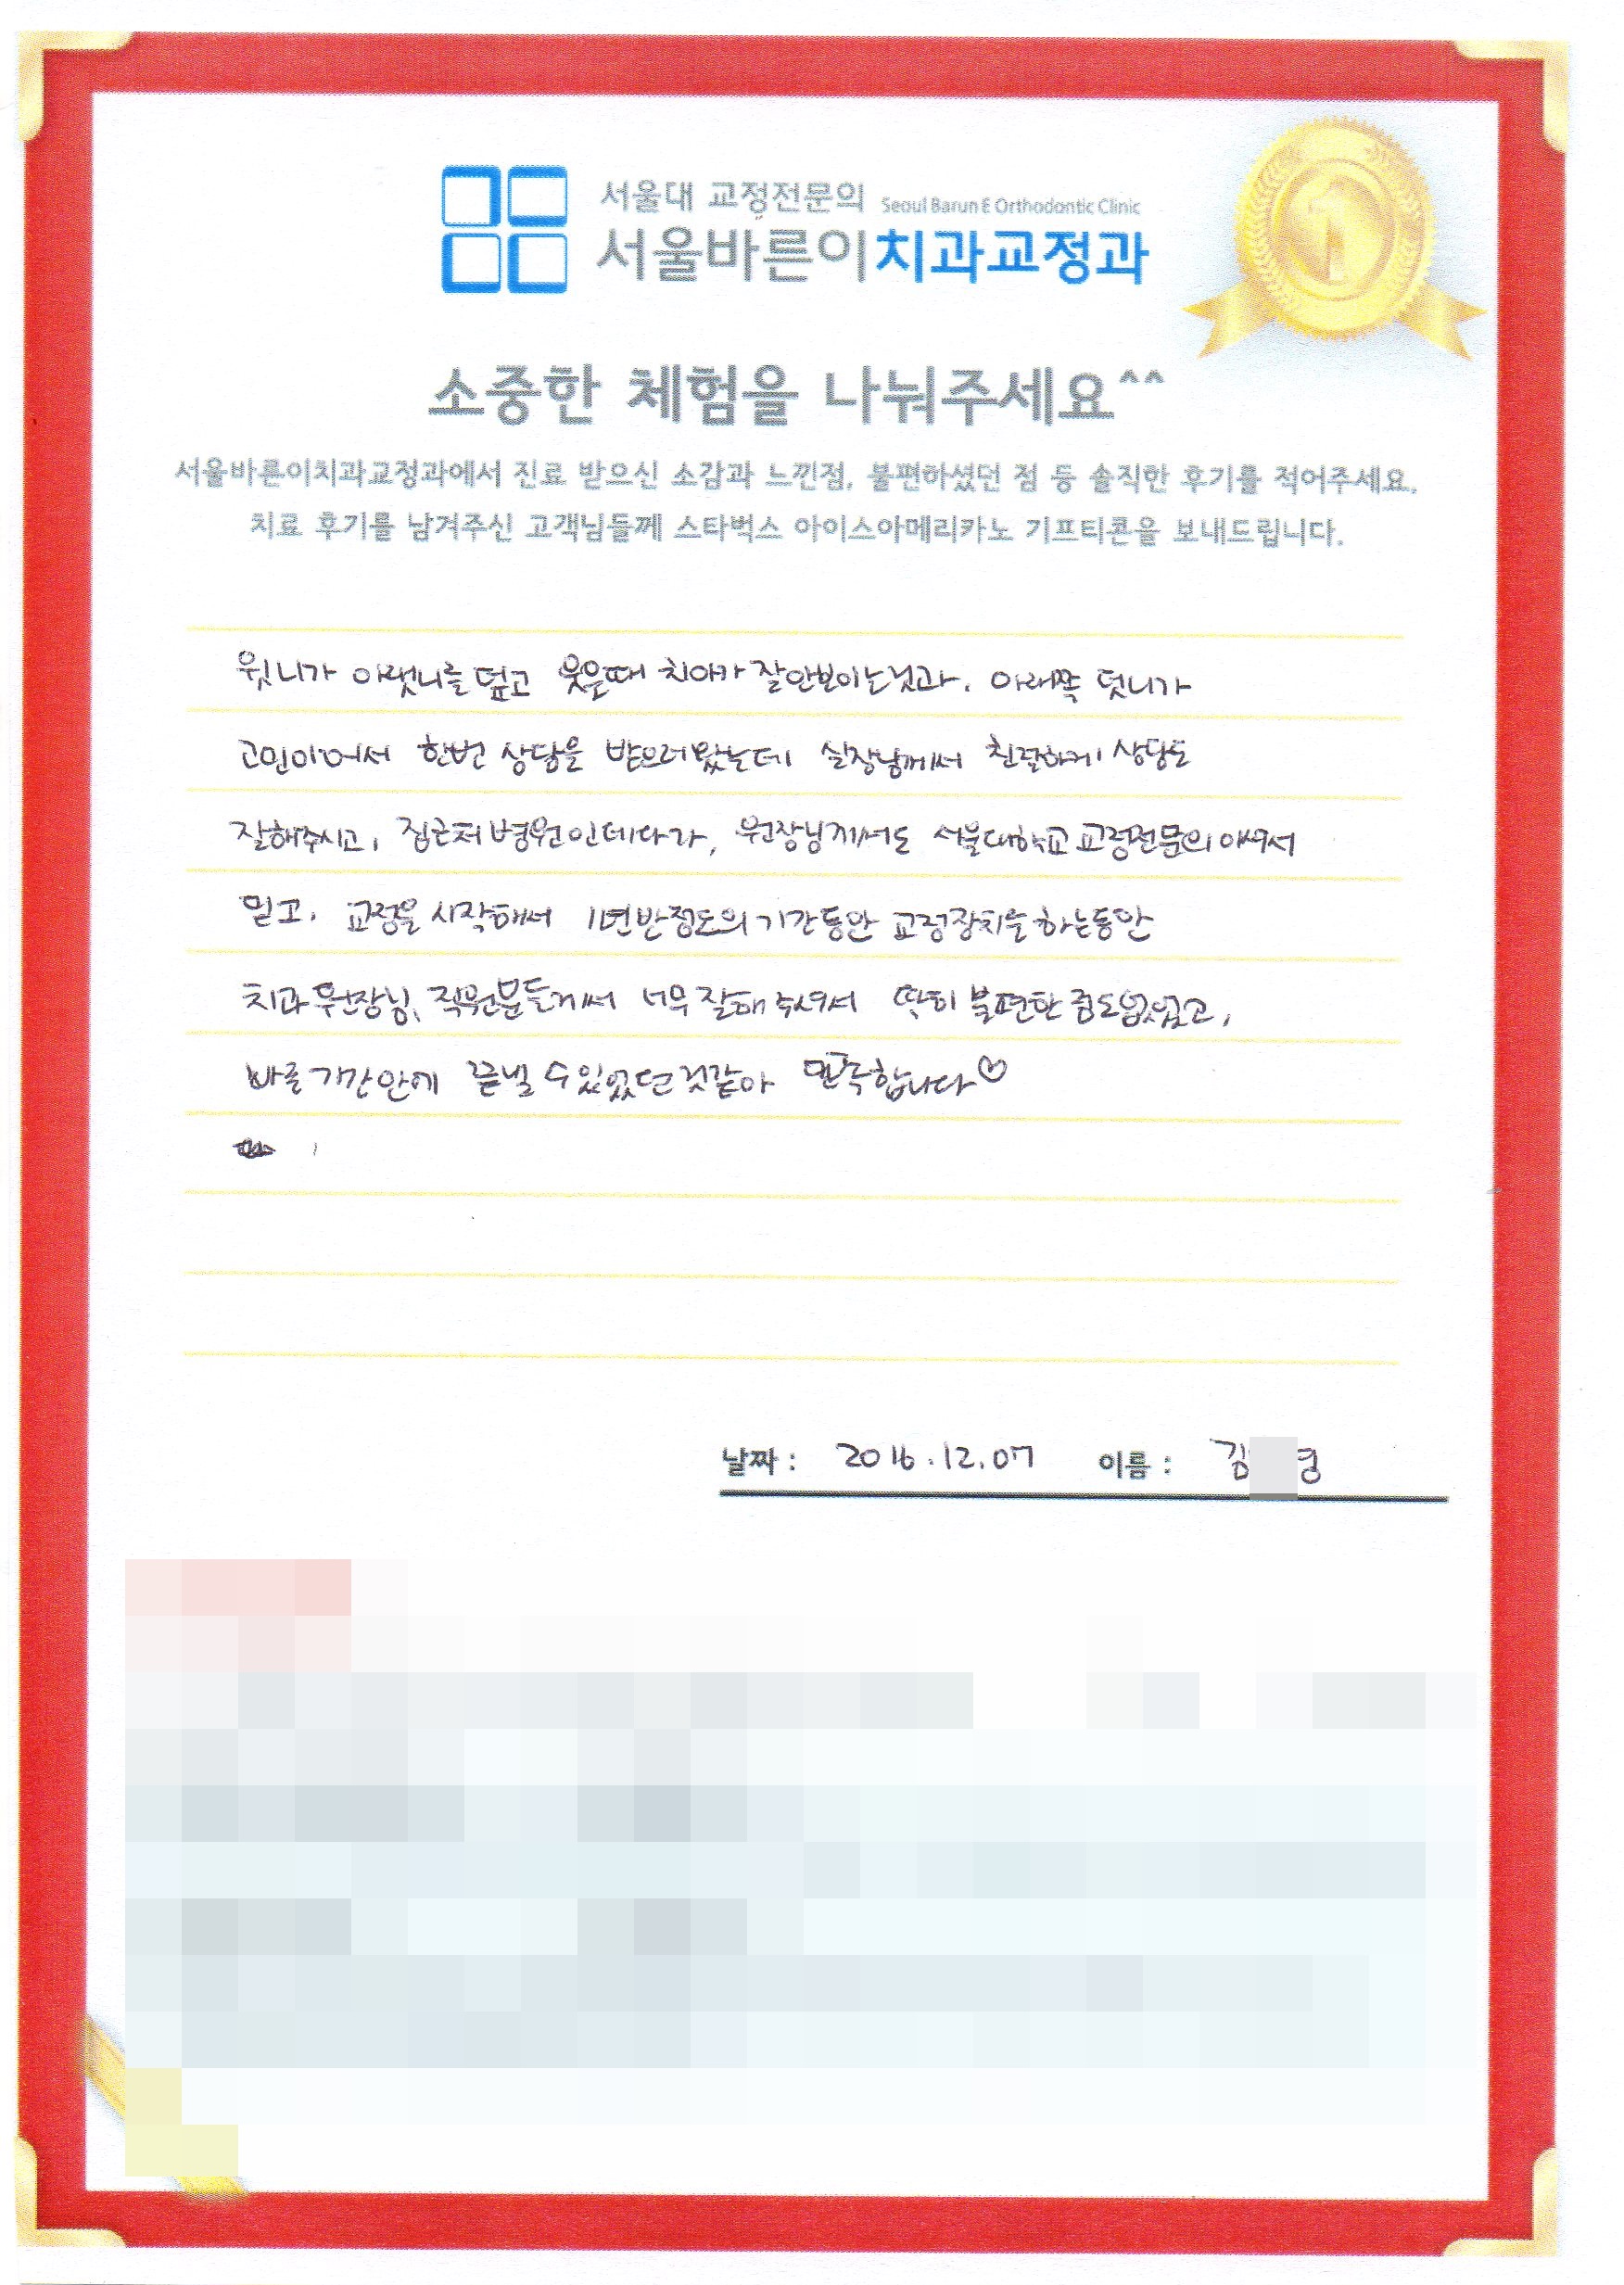 서울대 교정전문의 Seoul Barun E Orthodontic Clinic
서울바른이치과교정과
1
소중한 체험을 나눠주세요^^
서울바른이치과교정과에서 진료 받으신 소감과 느낀점, 불편하셨던 점 등 솔직한 후기를 적어주세요.
치료 후기를 남겨주신 고객님들께 스타벅스 아이스아메리카노 기프티콘을 보내드립니다.
윗니가 아랫니를 덮고 웃을때 치아가 잘안보이는것과, 아래쪽 덧니가
고민이어서 한번 상담을 받으러왔는데 실장님께서 친절하게 상담도
잘해주시고, 집근처 병원인데다가, 원장님께서도 서울대학교 교정전문의 이셔서
믿고, 교정을 시작해서 1년반정도의 기간동안 교정장치를 하는동안
치과 원장님, 직원분들께서 너무 잘해 주셔서 딱히 불편한 점도없었고,
바른기간안에 끝낼 수있었던것같아 만족합니다♡
날짜 : 2016.12.07 이름 : 김 영